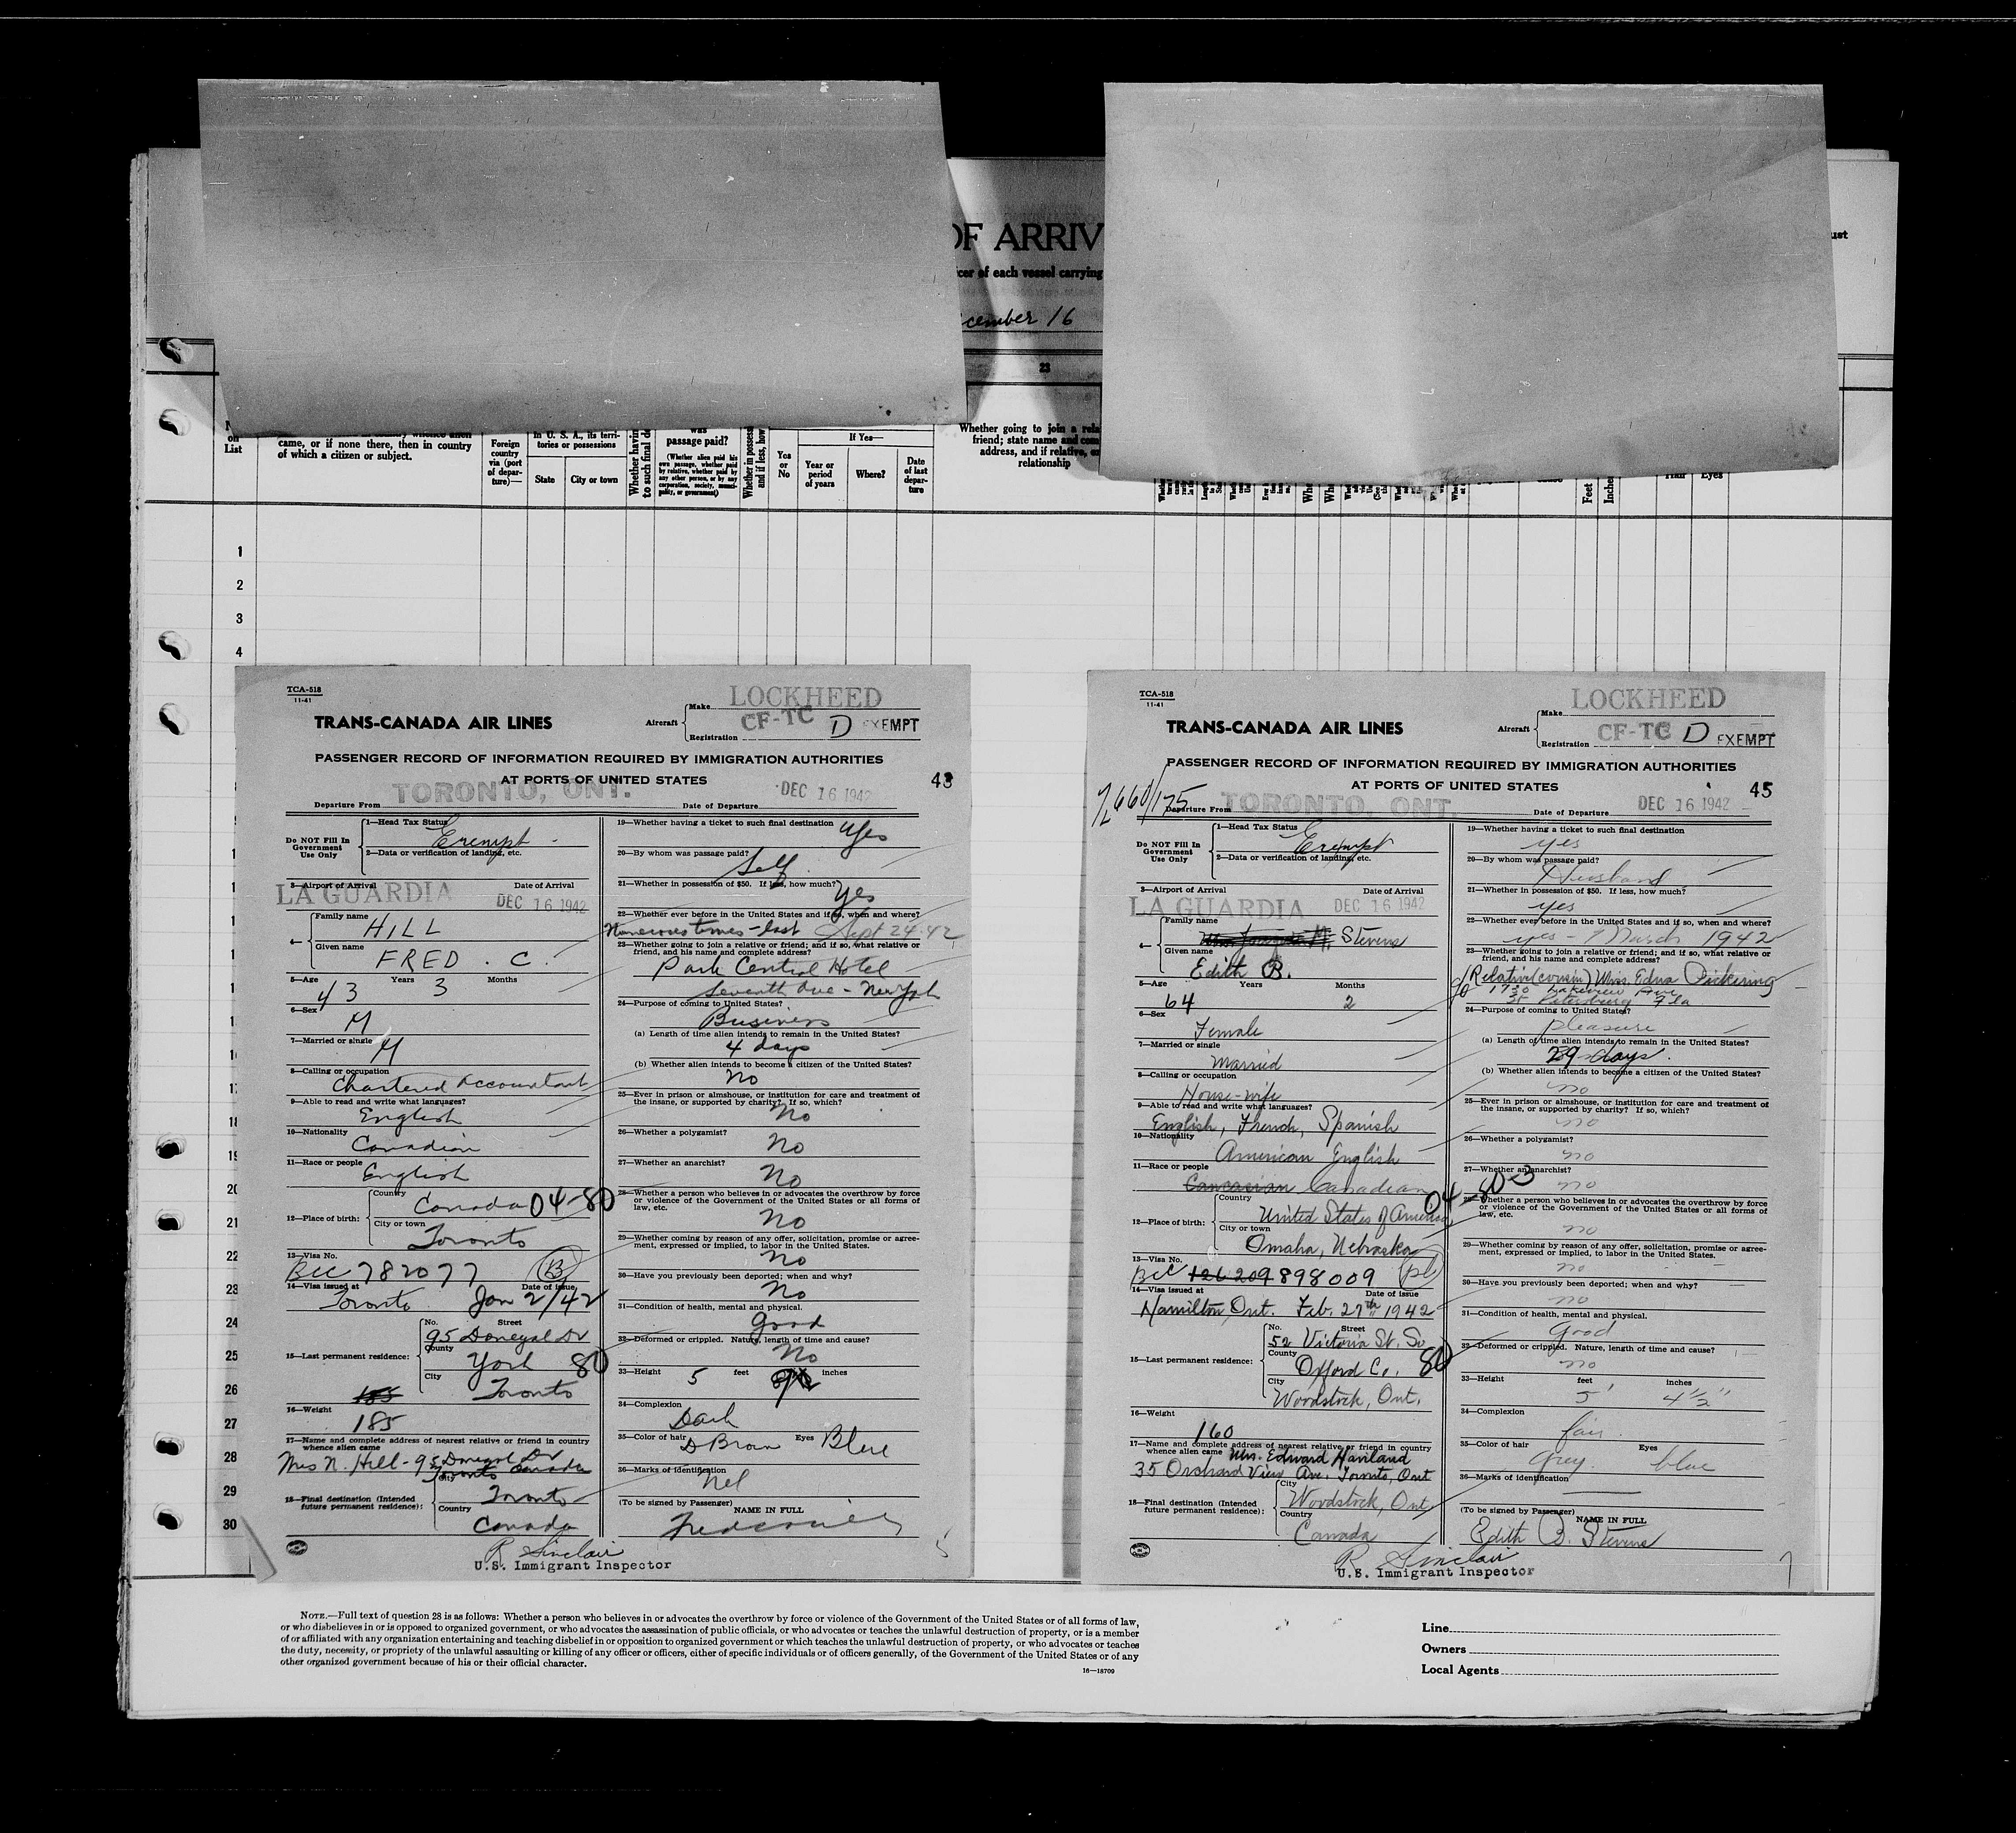 OF ARRIV
icer of each vessel carrying
cember 16
23
on
List
came, or if none there, then in country
of which a citizen or subject.
Foreign
country
via (port
of depar-
ture)—
In U. S. A., its terri-
tories or possessions
State
City or town
Whether having
to such final de
was
passage paid?
(Whether alien paid his
own passage, whether paid
by relative, whether paid by
any other person, or by any
corporation, society, munici-
pality, or government)
Whether in possess
and if less, how
Yes
or
No
If Yes—
Year or
period
of years
Where?
Date
of last
depar-
ture
Whether going to join a rela
friend; state name and com
address, and if relative,
relationship
Feet
Inches
Hair
Eyes
1
2
3
4
TCA-518
11-41
TRANS-CANADA AIR LINES
Aircraft
Make
LOCKHEED
Registration
CF-TC D EXEMPT
PASSENGER RECORD OF INFORMATION REQUIRED BY IMMIGRATION AUTHORITIES
AT PORTS OF UNITED STATES
43
Departure From TORONTO, ONT.
Date of Departure DEC 16 1942
Do NOT Fill In
Government
Use Only
1—Head Tax Status
Exempt
2—Data or verification of landing, etc.
3—Airport of Arrival
LA GUARDIA
Date of Arrival
DEC 16 1942
4—
Family name
HILL
Given name
FRED . C .
5—Age Years Months
43 3
6—Sex
M
7—Married or single
M
8—Calling or occupation
Chartered Accountant
9—Able to read and write what languages?
English
10—Nationality
Canadian
11—Race or people
English
12—Place of birth:
Country
Canada 04-80
City or town
Toronto
13—Visa No.
BCC 782077 (B)
14—Visa issued at Date of issue
Toronto Jan 2/42
15—Last permanent residence:
No. Street
95 Donegal Dr
County
York 80
City
Toronto
185
16—Weight
185
17—Name and complete address of nearest relative or friend in country
whence alien came
Mrs N. Hill - 95 Donegal Dr
Toronto Canada
18—Final destination (Intended
future permanent residence):
City
Toronto
Country
Canada
R Sinclair
U.S. Immigrant Inspector
19—Whether having a ticket to such final destination
Yes
20—By whom was passage paid?
Self
21—Whether in possession of $50. If less, how much?
Yes
22—Whether ever before in the United States and if so, when and where?
Numerous times - last Sept 24-42
23—Whether going to join a relative or friend; and if so, what relative or
friend, and his name and complete address?
Park Central Hotel
Seventh Ave - New York
24—Purpose of coming to United States?
Business
(a) Length of time alien intends to remain in the United States?
4 days
(b) Whether alien intends to become a citizen of the United States?
No
25—Ever in prison or almshouse, or institution for care and treatment of
the insane, or supported by charity? If so, which?
No
26—Whether a polygamist?
No
27—Whether an anarchist?
No
28—Whether a person who believes in or advocates the overthrow by force
or violence of the Government of the United States or all forms of
law, etc.
No
29—Whether coming by reason of any offer, solicitation, promise or agree-
ment, expressed or implied, to labor in the United States.
No
30—Have you previously been deported; when and why?
No
31—Condition of health, mental and physical.
Good
32—Deformed or crippled. Nature, length of time and cause?
No
33—Height 5 feet inches
34—Complexion
Dark
35—Color of hair Eyes
D Brown Blue
36—Marks of identification
Nil
(To be signed by Passenger)
NAME IN FULL
TCA-518
11-41
TRANS-CANADA AIR LINES
Aircraft
Make
LOCKHEED
Registration
CF-TC D EXEMPT
PASSENGER RECORD OF INFORMATION REQUIRED BY IMMIGRATION AUTHORITIES
AT PORTS OF UNITED STATES
45
7660/175
Departure From TORONTO, ONT
Date of Departure DEC 16 1942
Do NOT Fill In
Government
Use Only
1—Head Tax Status
Exempt
2—Data or verification of landing, etc.
3—Airport of Arrival
LA GUARDIA
Date of Arrival
DEC 16 1942
4—
Family name
Stevens
Given name
Edith B.
5—Age Years Months
64 2
6—Sex
Female
7—Married or single
Married
8—Calling or occupation
House-wife
9—Able to read and write what languages?
English, French, Spanish
10—Nationality
American English
11—Race or people
Caucasian Canadian
04-80-3
12—Place of birth:
Country
United States of America
City or town
Omaha, Nebraska
13—Visa No.
BCC 126209 898009 (pl)
14—Visa issued at Date of issue
Hamilton, Ont. Feb. 27th 1942
15—Last permanent residence:
No. Street
52 Victoria St. So
County
Oxford Co. 80
City
Woodstock, Ont.
16—Weight
160
17—Name and complete address of nearest relative or friend in country
whence alien came Mrs. Edward Haviland
35 Orchard View Ave. Toronto, Ont
18—Final destination (Intended
future permanent residence):
City
Woodstock, Ont.
Country
Canada
R Sinclair
U.S. Immigrant Inspector
19—Whether having a ticket to such final destination
yes
20—By whom was passage paid?
Husband
21—Whether in possession of $50. If less, how much?
yes
22—Whether ever before in the United States and if so, when and where?
yes - 7 March 1942
23—Whether going to join a relative or friend; and if so, what relative or
friend, and his name and complete address?
Relative (cousin) Miss. Edna Pickering
1730 Lakeview Ave
St Petersburg Fla
24—Purpose of coming to United States?
pleasure
(a) Length of time alien intends to remain in the United States?
29 days.
(b) Whether alien intends to become a citizen of the United States?
no
25—Ever in prison or almshouse, or institution for care and treatment of
the insane, or supported by charity? If so, which?
no
26—Whether a polygamist?
no
27—Whether an anarchist?
no
28—Whether a person who believes in or advocates the overthrow by force
or violence of the Government of the United States or all forms of
law, etc.
no
29—Whether coming by reason of any offer, solicitation, promise or agree-
ment, expressed or implied, to labor in the United States.
no
30—Have you previously been deported; when and why?
no
31—Condition of health, mental and physical.
Good
32—Deformed or crippled. Nature, length of time and cause?
no
33—Height feet inches
5' 4 1/2"
34—Complexion
fair.
35—Color of hair Eyes
Grey. blue
36—Marks of identification
(To be signed by Passenger)
NAME IN FULL
Edith B. Stevens
18
19
20
21
22
23
24
25
26
27
28
29
30
NOTE.—Full text of question 28 is as follows: Whether a person who believes in or advocates the overthrow by force or violence of the Government of the United States or of all forms of law,
or who disbelieves in or is opposed to organized government, or who advocates the assassination of public officials, or who advocates or teaches the unlawful destruction of property, or is a member
of or affiliated with any organization entertaining and teaching disbelief in or opposition to organized government or which teaches the unlawful destruction of property, or who advocates or teaches
the duty, necessity, or propriety of the unlawful assaulting or killing of any officer or officers, either of specific individuals or of officers generally, of the Government of the United States or of any
other organized government because of his or their official character.
16—18709
Line
Owners
Local Agents